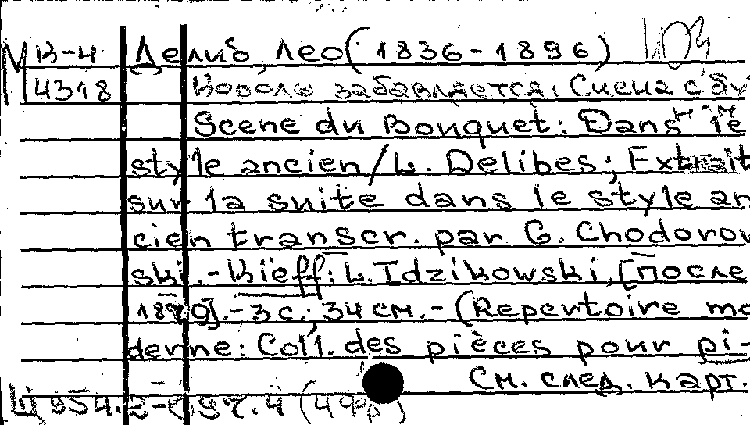 М В-4 Делиб, Лео (1836-1896)
4318 Король забавляется. Сцена с бу
Scene du Bouquet: Dans le
style ancien / L. Delibes; Extrait
sur la suite dans le style an
cien transcr. par G. Chodorow
ski. - Kieff: L. Idzikowski, [после
1879]. - 3 с.; 34 см. - (Repertoire mo
derne: Coll. des pièces pour pi-
См. след. карт.
Ц